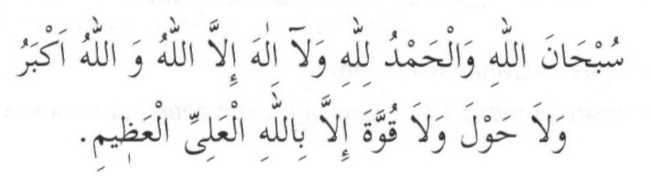 سُبْحَانَ اللّٰهِ وَالْحَمْدُ لِلّٰهِ وَلَآ اِلٰهَ إِلَّا اللّٰهُ وَ اللّٰهُ اَكْبَرُ
وَلاَ حَوْلَ وَلاَ قُوَّةَ إِلاَّ بِاللّٰهِ الْعَلِىِّ الْعَظِيمِ.